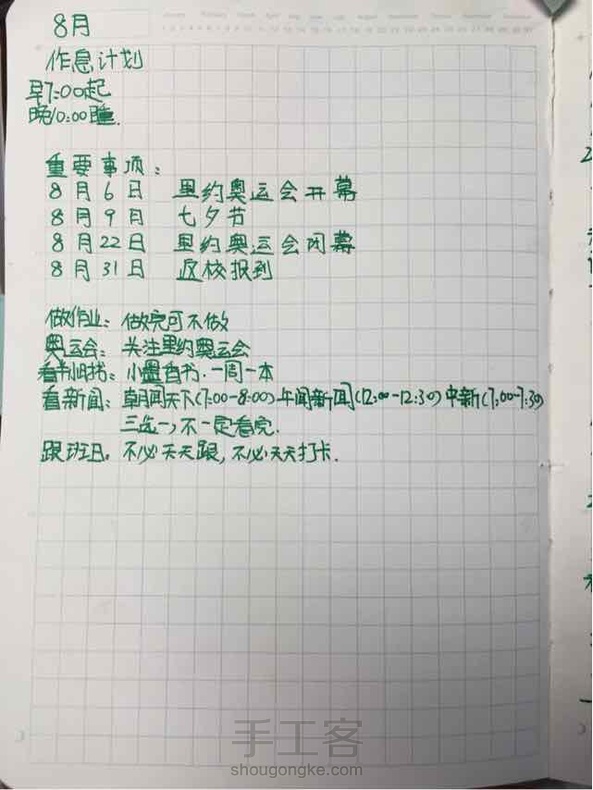 8月
作息计划
早7:00起
晚10:00睡.
重要事项:
8月6日 里约奥运会开幕
8月9日 七夕节
8月22日 里约奥运会闭幕
8月31日 返校报到
做作业: 做完可不做
奥运会: 关注里约奥运会
看书: 一周一本
看新闻: 朝闻天下(7:00-8:00) 午间新闻(12:00-12:30) 中新(7:00-7:30)
三选一,不一定看完.
跟班日, 不必天天跟,不必天天打卡.
手工客
shougongke.com